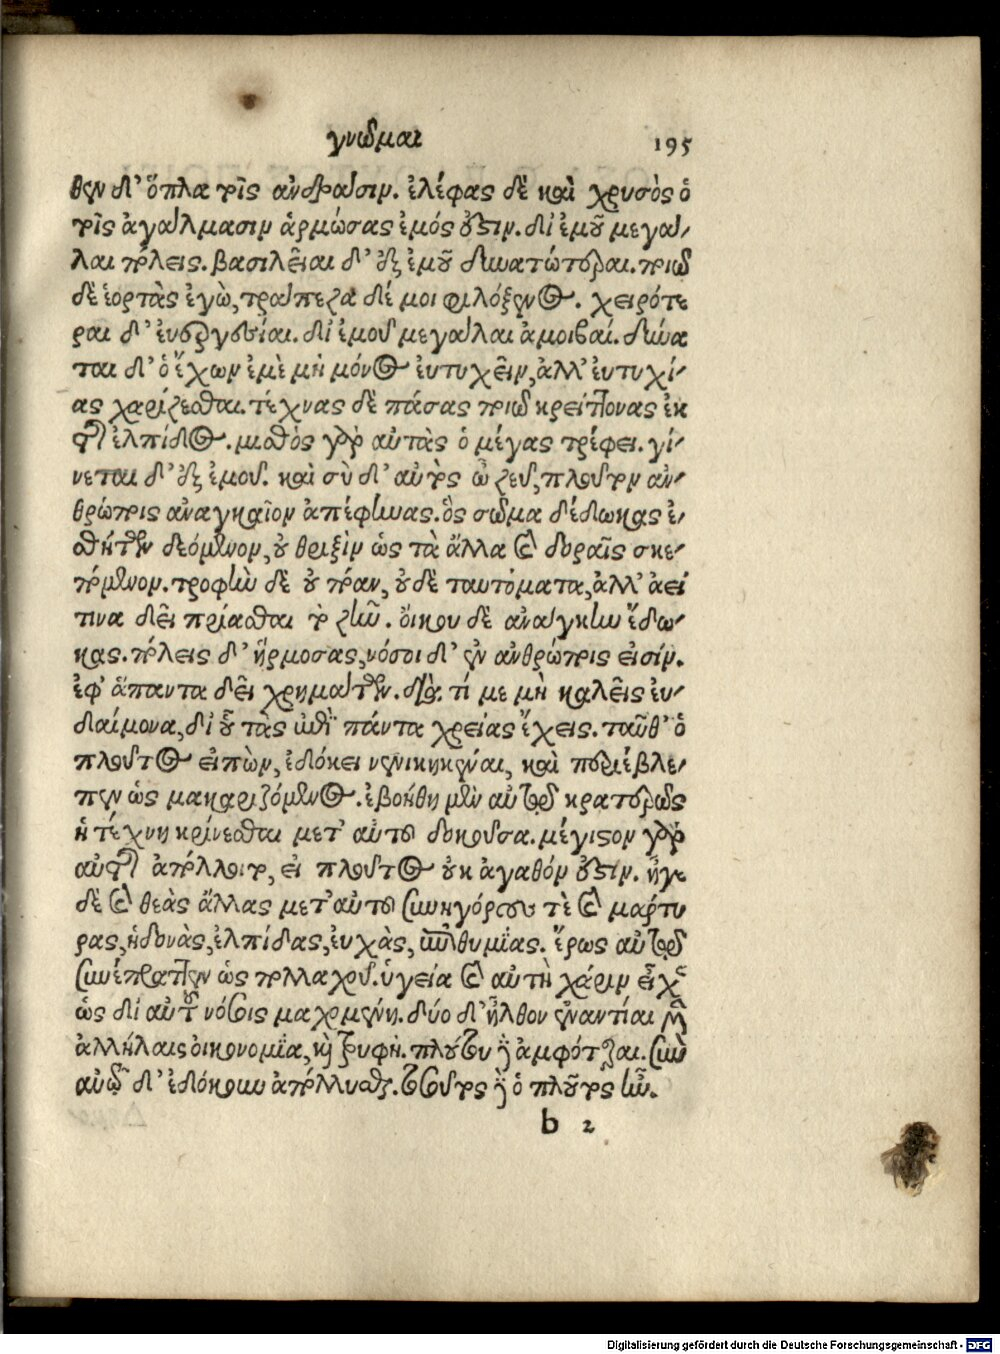 γνῶμαι 195
θεν δ' ὅπλα τοῖς ἀνδράσιν. ἐλέφας δὲ καὶ χρυσὸς ὁ
τοῖς ἀγάλμασιν ἁρμώσας ἐμός ἐστιν. δι' ἐμοῦ μεγά-
λαι πόλεις. βασιλεῖαι δ' ἐξ ἐμοῦ δυνατώτεραι. ποιῶ
δὲ ἑορτὰς ἐγὼ, τράπεζα δέ μοι φιλόξενος. χειρότε
ραι δ' ἐυεργεσίαι. δι' ἐμοῦ μεγάλαι ἀμοιβαί. δύνα
ται δ' ὁ ἔχων ἐμὲ μὴ μόνος ἐυτυχεῖν, ἀλλ' ἐυτυχί-
ας χαρίζεσθαι. τέχνας δὲ πάσας ποιῶ κρείττονας ἐκ
τῆς ἐλπίδος. μισθὸς γὰρ αὐτὰς ὁ μέγας τρέφει. γί-
νεται δ' ἐξ ἐμοῦ. καὶ σὺ δ' αὐτὸς ὦ ζεῦ, πλοῦτον ἀν-
θρώποις ἀναγκαῖον ἀπέφηνας. ὃς σῶμα δέδωκας ἐ-
σθήτων δεόμενον, οὐ θριξὶν ὡς τὰ ἄλλα καὶ δοραῖς σκε-
πόμενον. τροφὴν δὲ οὐ πόαν, οὐδὲ ταυτόματα, ἀλλ' ἀεί
τινα δεῖ πρίασθαι τὸ ζῆν. οἴκου δὲ ἀνάγκην ἔδω-
κας. πόλεις δ' ἥρμοσας, νόσοι δ' ἐν ἀνθρώποις εἰσίν.
ἐφ' ἅπαντα δεῖ χρημάτων. διὰ τί με μὴ καλεῖς ἐυ-
δαίμονα, δι' οὗ τὰς ἐπὶ πάντα χρείας ἔχεις. ταῦθ' ὁ
πλοῦτος εἰπὼν, ἐδόκει νενικηκέναι, καὶ περιέβλε-
πεν ὡς μακαριζόμενος. ἐβοήθη μὲν αὐτῷ κρατερῶς
ἡ τέχνη κρίνεσθαι μετ' αὐτοῦ δοκοῦσα. μέγιστον γὰρ
αὐτῆς ἀπόλλοιτο, εἰ πλοῦτος οὐκ ἀγαθόν ἐστιν. ἦγε
δὲ καὶ θεὰς ἄλλας μετ' αὐτοῦ συνηγόρους τὲ καὶ μάρτυ
ρας, ἡδονὰς, ἐλπίδας, ἐυχὰς, ἐπιθυμίας. ἔρως αὐτῷ
συνέπραττεν ὡς πολλαχοῦ. ὑγεία καὶ αὐτὴ χάριν εἶχε
ὡς δι' αὐτοῦ νόσοις μαχομένη. δύο δ' ἦλθον ἐναντίαι μὲν
ἀλλήλαις οἰκονομία, καὶ τρυφή. πλούτου δὲ ἀμφότεραι. σὺν
αὐτῷ δ' ἐδόκουν ἀπόλλυσθαι. τοσοῦτος δὲ ὁ πλοῦτος ἦν.
b 2
Digitalisierung gefördert durch die Deutsche Forschungsgemeinschaft - DFG